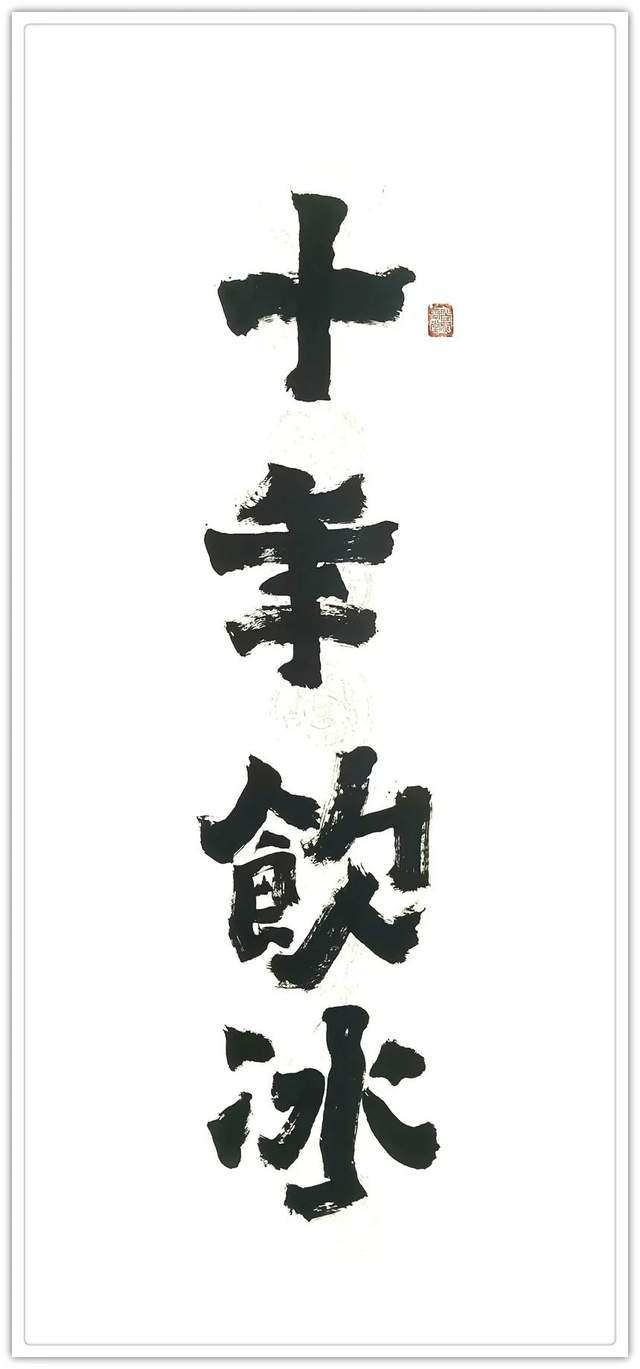 十年飲冰